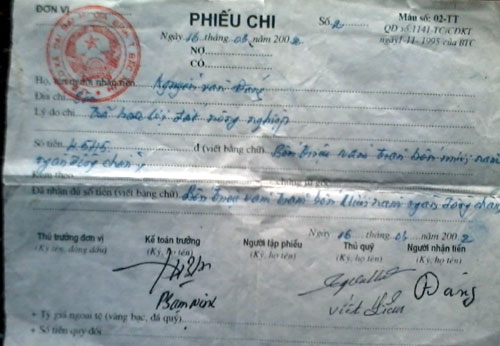 ĐƠN VỊ
PHIẾU CHI
Số: 2
Mẫu số: 02-TT
QĐ số:1141-TC/CĐKT
ngày 1-11-1995 của BTC
Ngày 16 tháng 03 năm 2002
NỢ
CÓ
Họ, tên người nhận tiền: Nguyễn Văn Đáng
Địa chỉ
Lý do chi: nông nghiệp
Số tiền: 4545 đ (viết bằng chữ): Bốn triệu năm trăm bốn mươi năm
ngàn đồng chẵn
Kèm theo chứng từ gốc
Đã nhận đủ số tiền (viết bằng chữ): Bốn triệu năm trăm bốn mươi năm ngàn đồng chẵn
Ngày 16 tháng 03 năm 2002
Thủ trưởng đơn vị
Kế toán trưởng
Người lập phiếu
Thủ quỹ
Người nhận tiền
(Ký, tên, đóng dấu)
(Ký, họ tên)
(Ký, họ tên)
(Ký, họ tên)
(Ký, họ tên)
Đáng
+ Tỷ giá ngoại tệ (vàng bạc, đá quý)
+ Số tiền quy đổi